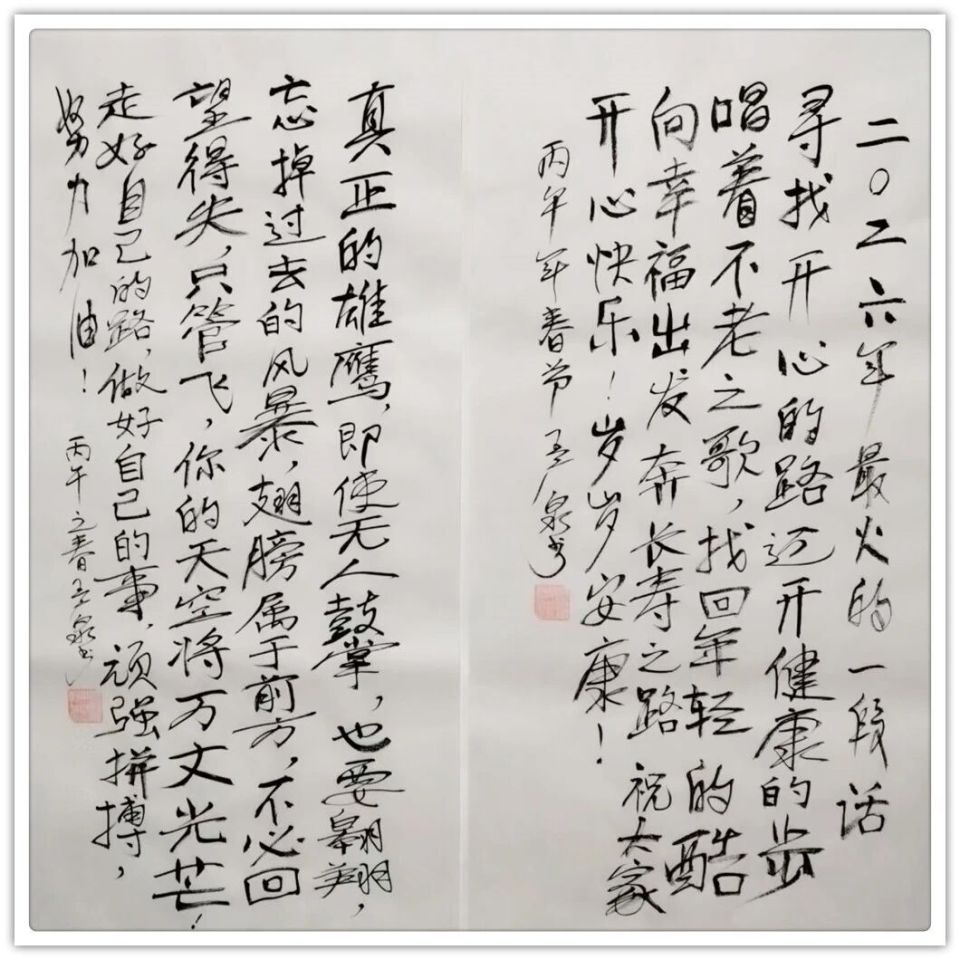 二〇二六年最火的一段话
寻找开心的路迈开健康的步
唱着不老之歌，找回年轻的酷
向幸福出发奔长寿之路 祝大家
开心快乐！岁岁安康！
丙午年春节 泉书
真正的雄鹰，即使无人鼓掌，也要翱翔，
忘掉过去的风暴，翅膀属于前方，不必回
望得失，只管飞，你的天空将万丈光芒！
走好自己的路，做好自己的事，顽强拼搏，
努力加油！ 丙午之春 泉书